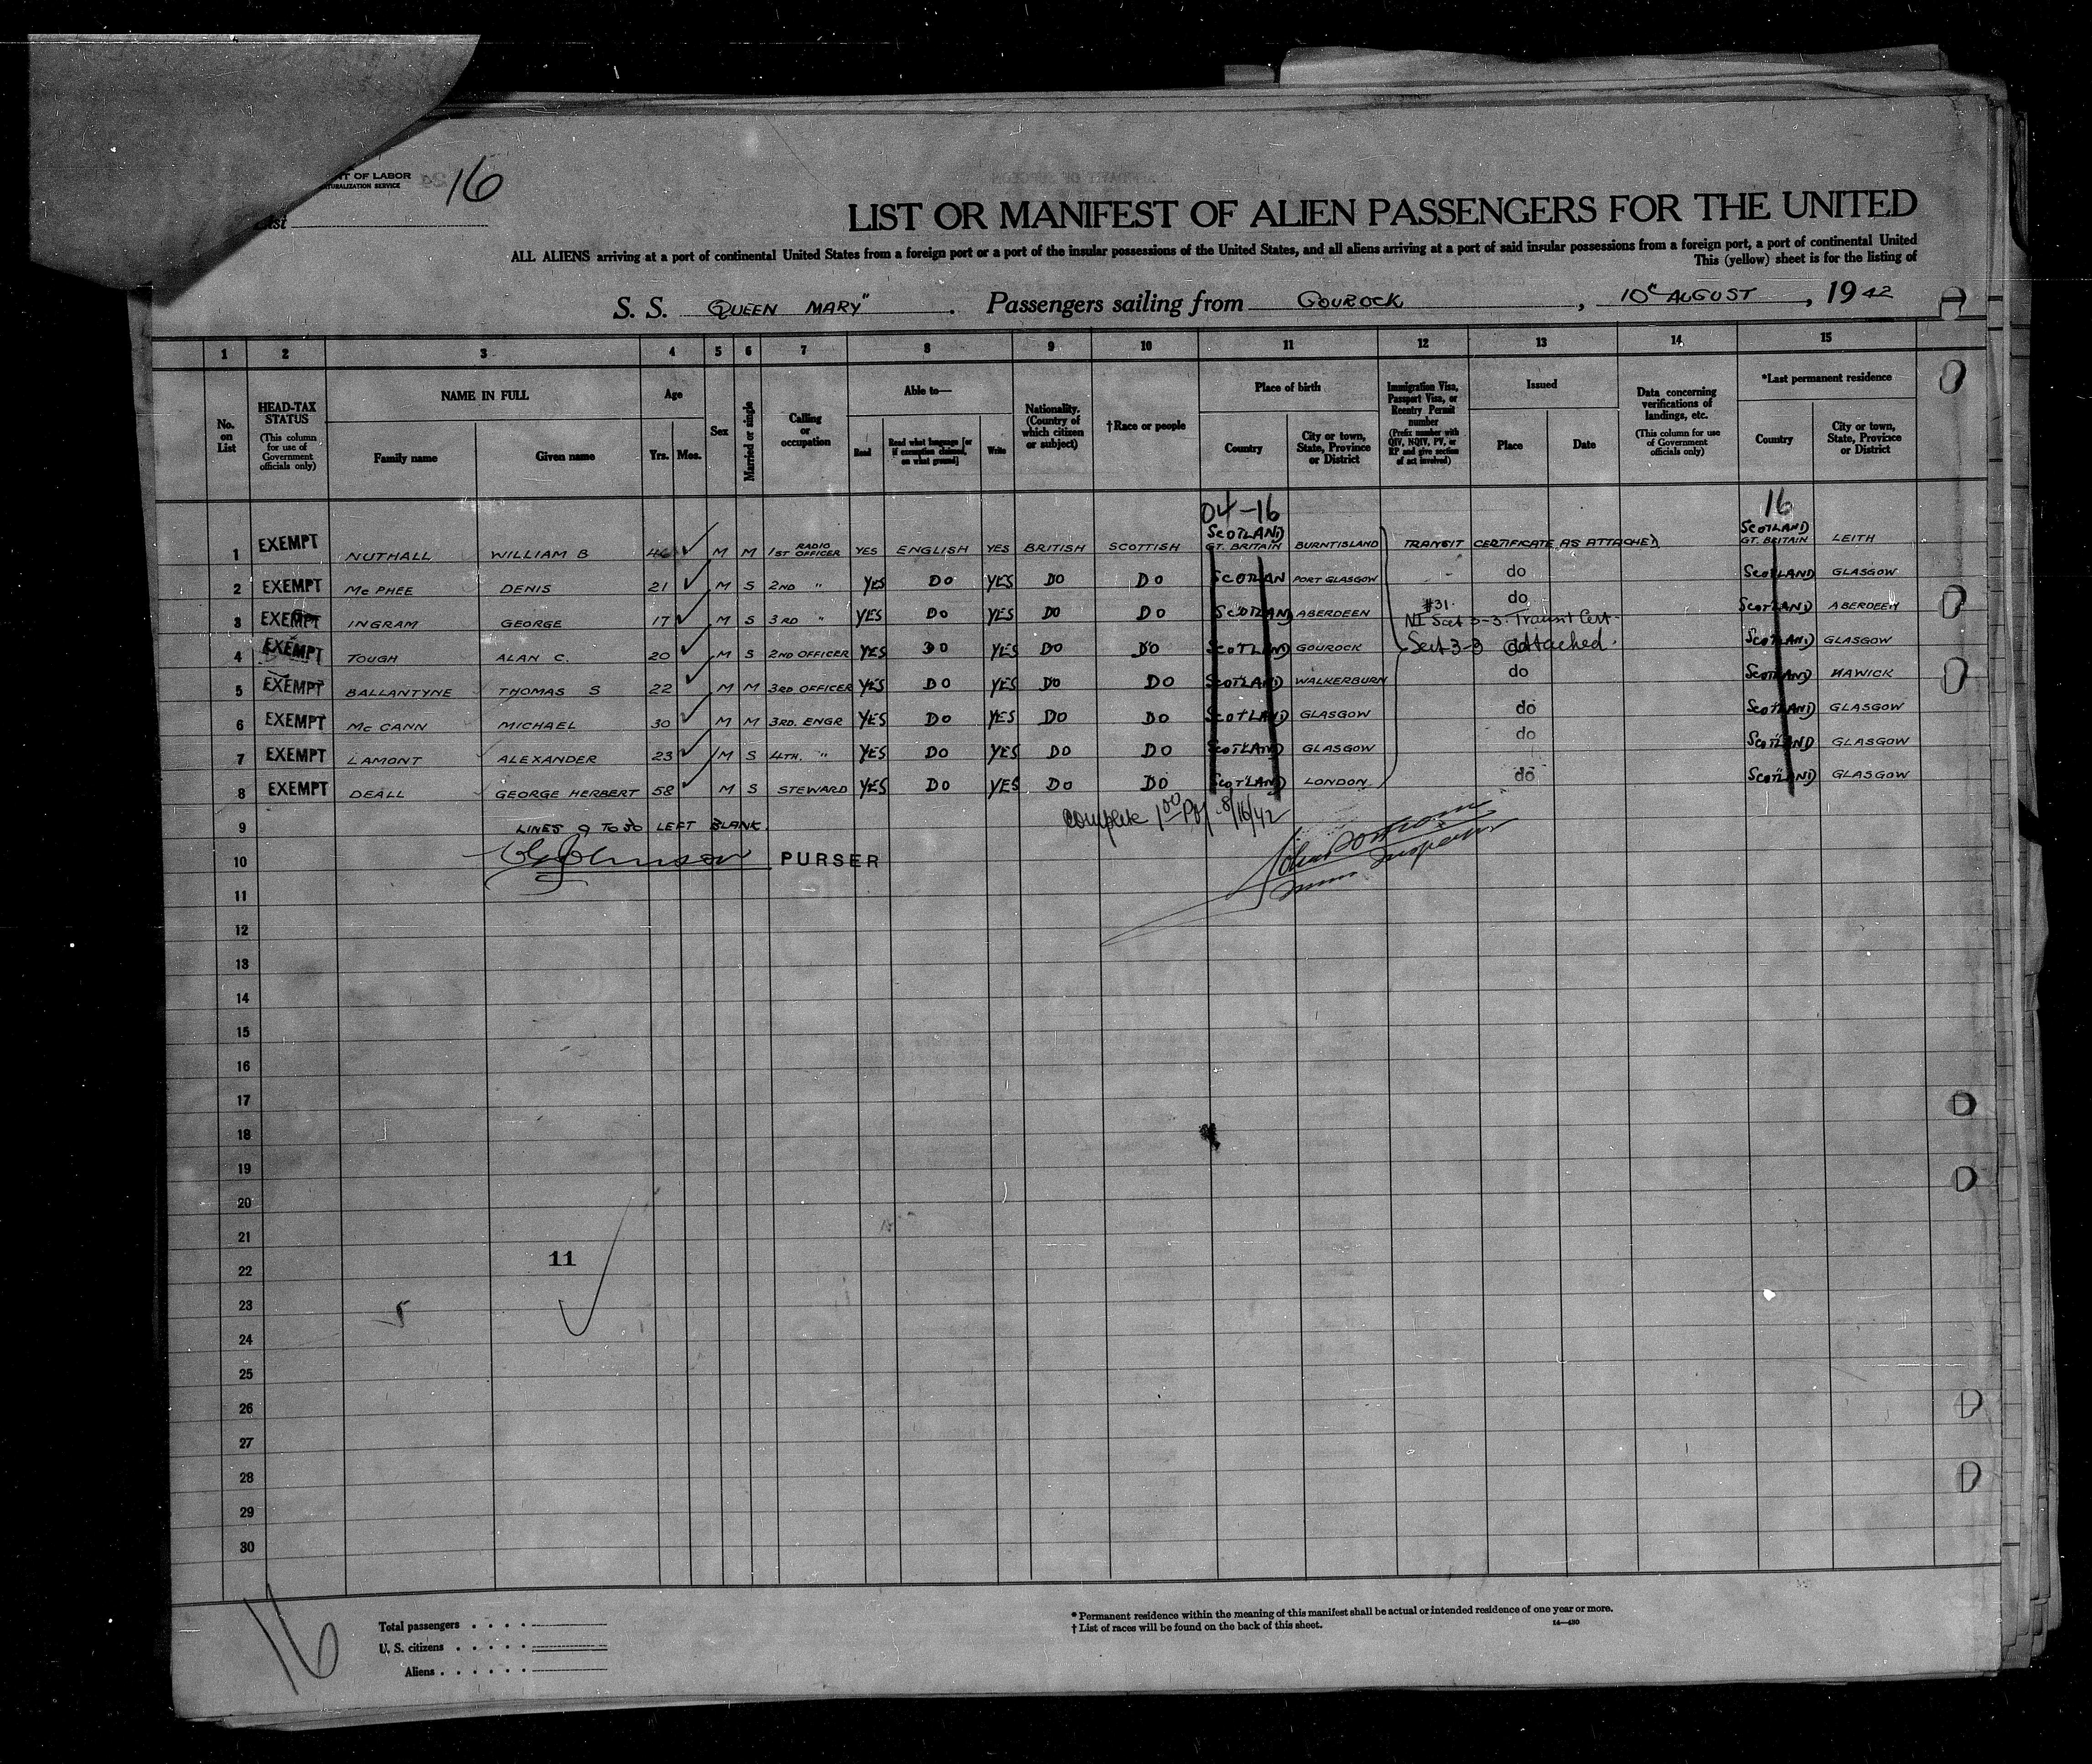 NT OF LABOR
TURALIZATION SERVICE
16
List
LIST OR MANIFEST OF ALIEN PASSENGERS FOR THE UNITED
ALL ALIENS arriving at a port of continental United States from a foreign port or a port of the insular possessions of the United States, and all aliens arriving at a port of said insular possessions from a foreign port, a port of continental United
This (yellow) sheet is for the listing of
S. S. QUEEN MARY" . Passengers sailing from GOUROCK , 10th AUGUST , 19 42
1 2 3 4 5 6 7 8 9 10 11 12 13 14 15
No. on List
HEAD-TAX STATUS (This column for use of Government officials only)
NAME IN FULL
Family name
Given name
Age
Yrs. Mos.
Sex
Married or single
Calling or occupation
Able to—
Read
Read what language [or if exemption claimed, on what ground]
Write
Nationality. (Country of which citizen or subject)
†Race or people
Place of birth
Country
City or town, State, Province or District
Immigration Visa, Passport Visa, or Reentry Permit number (Prefix number with QIV, NQIV, PV, or RP and give section of act involved)
Issued
Place
Date
Data concerning verifications of landings, etc. (This column for use of Government officials only)
*Last permanent residence
Country
City or town, State, Province or District
04-16
16
1 EXEMPT NUTHALL WILLIAM B 46 M M 1ST RADIO OFFICER YES ENGLISH YES BRITISH SCOTTISH SCOTLAND GT. BRITAIN BURNTISLAND TRANSIT CERTIFICATE AS ATTACHED SCOTLAND GT. BRITAIN LEITH
2 EXEMPT Mc PHEE DENIS 21 M S 2ND " YES DO YES DO DO SCOTLAN PORT GLASGOW do SCOTLAND GLASGOW
3 EXEMPT INGRAM GEORGE 17 M S 3RD " YES DO YES DO DO SCOTLAND ABERDEEN #31 do SCOTLAND ABERDEEN
NI Sect 3-3. Transit Cert.
4 EXEMPT TOUGH ALAN C. 20 M S 2ND OFFICER YES DO YES DO DO SCOTLAND GOUROCK Sect 3-3 attached. SCOTLAND GLASGOW
5 EXEMPT BALLANTYNE THOMAS S 22 M M 3RD OFFICER YES DO YES DO DO SCOTLAND WALKERBURN do SCOTLAND HAWICK
6 EXEMPT Mc CANN MICHAEL 30 M M 3RD. ENGR YES DO YES DO DO SCOTLAND GLASGOW do SCOTLAND GLASGOW
7 EXEMPT LAMONT ALEXANDER 23 M S 4TH. " YES DO YES DO DO SCOTLAND GLASGOW do SCOTLAND GLASGOW
8 EXEMPT DEALL GEORGE HERBERT 58 M S STEWARD YES DO YES DO DO SCOTLAND LONDON do SCOTLAND GLASGOW
9 LINES 9 TO 30 LEFT BLANK. complete 8/16/42
10 PURSER Inspector
11
12
13
14
15
16
17
18
19
20
21
11
22
23
24
25
26
27
28
29
30
16
Total passengers
U. S. citizens
Aliens
* Permanent residence within the meaning of this manifest shall be actual or intended residence of one year or more.
† List of races will be found on the back of this sheet.
14—430